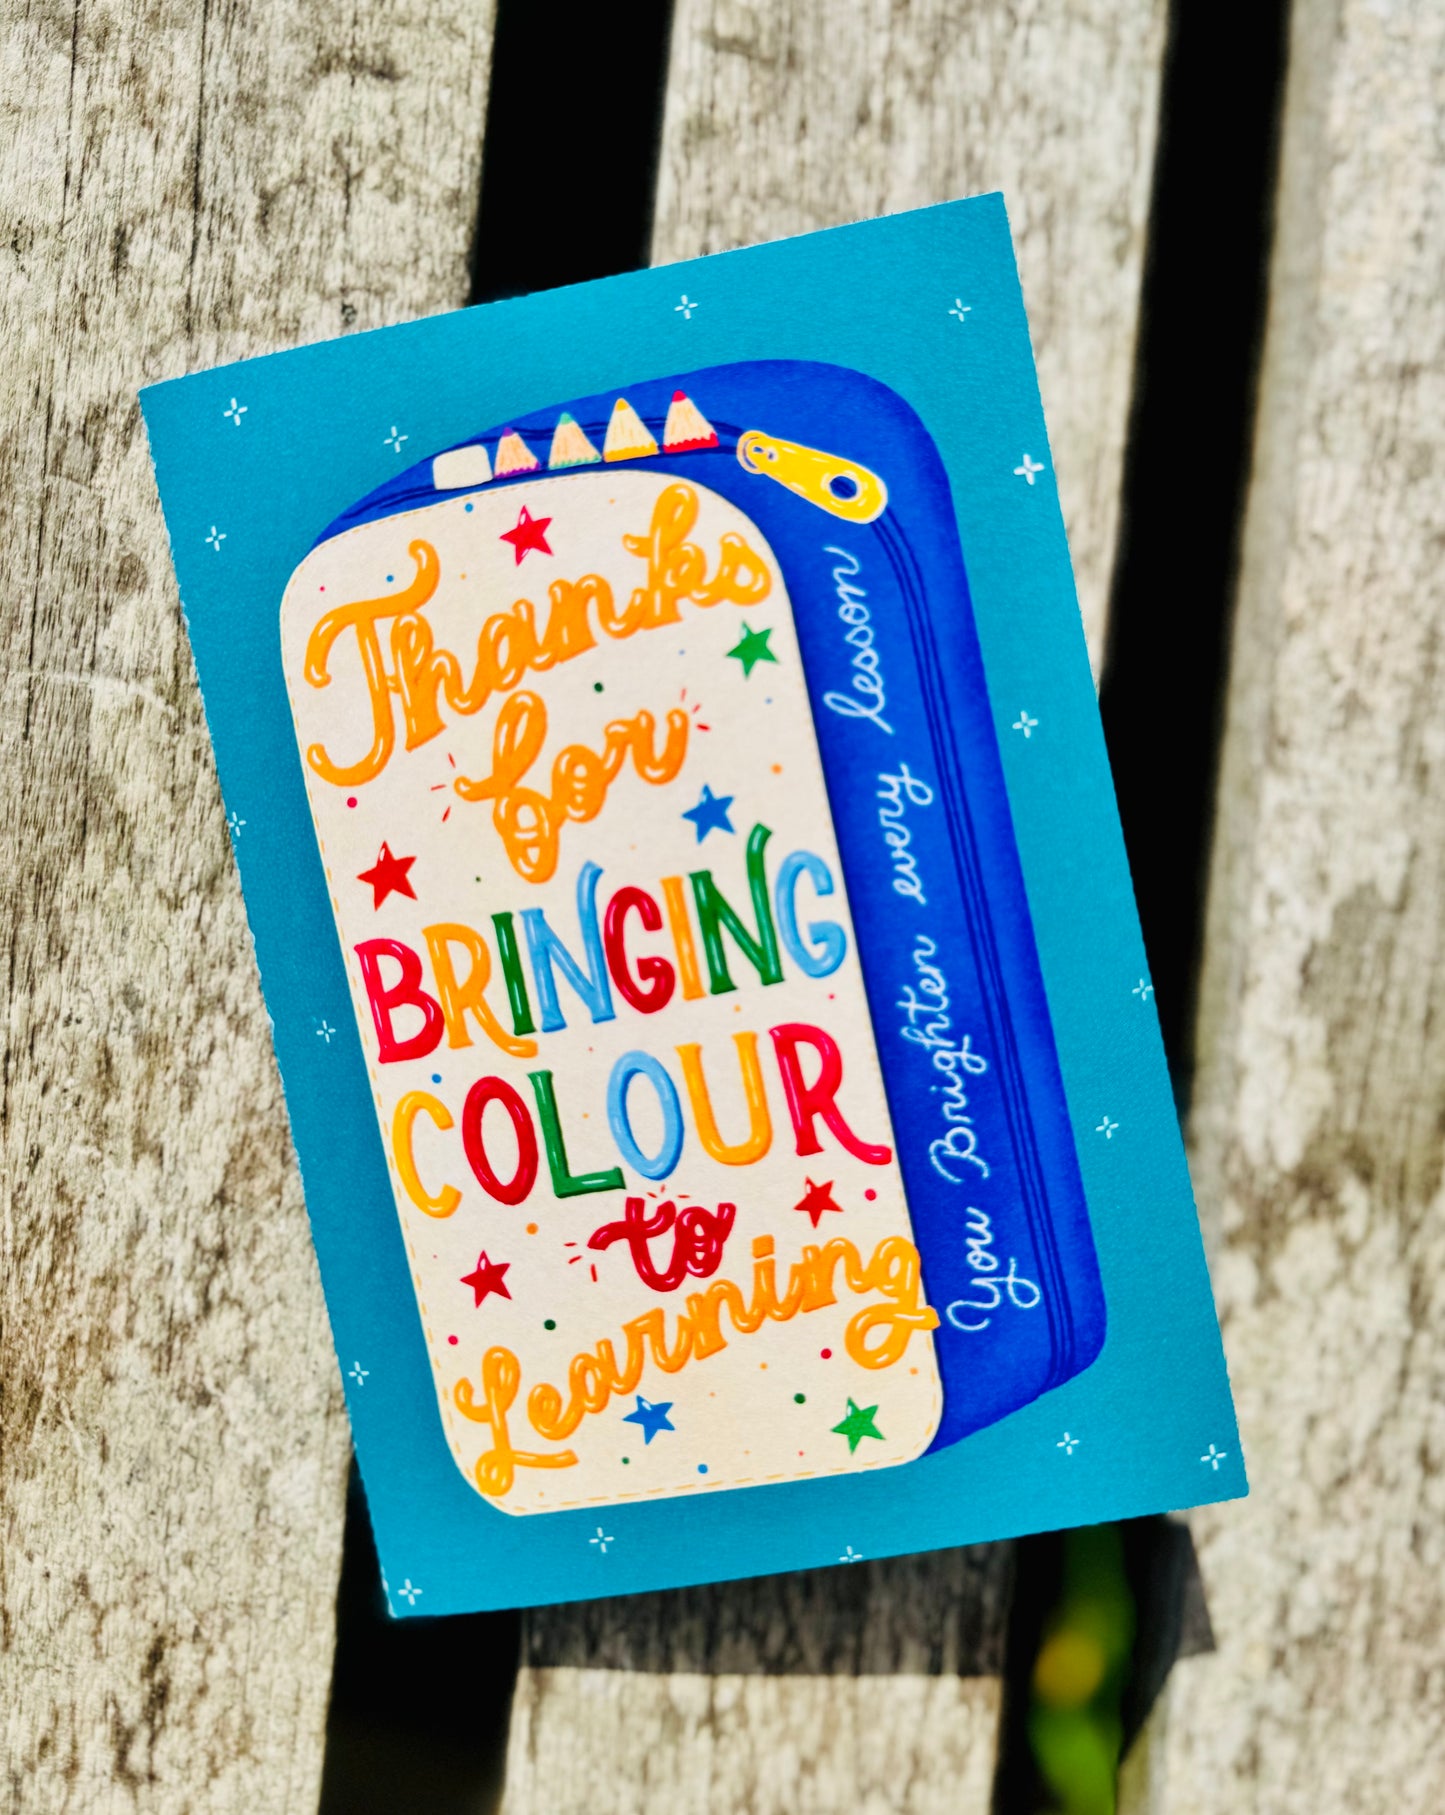 Thanks
for
BRINGING
COLOUR
to
Learning
You Brighten every lesson